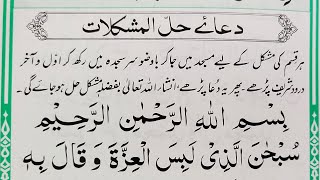 دعائے حلّ المشکلات
ہر قسم کی مشکل کے لیے مسجد میں جا کر باوضو سر سجدہ میں رکھ کر اوّل و آخر
درود شریف پڑھے۔ پھر یہ دُعا پڑھے، انشاء اللہ تعالیٰ بفضلہ مشکل حل ہو جائے گی۔
بِسْمِ اللهِ الرَّحْمٰنِ الرَّحِيْمِ
سُبْحٰنَ الَّذِىْ لَبِسَ الْعِزَّةَ وَ قَالَ بِهٖ